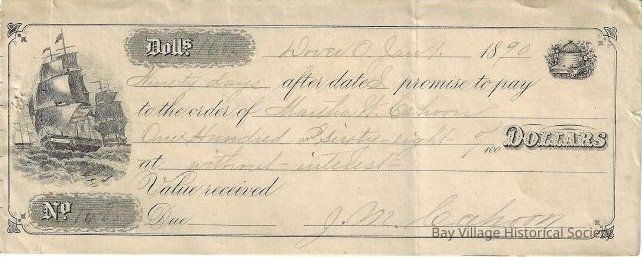 Dolls. 168
Dover O. Jan 1 1890
Ninety days after date I promise to pay
to the order of Martha W. Cahoon
One Hundred & Sixty-eight 0/100 DOLLARS
at without interest
Value received
No. Due J. M. Cahoon
Bay Village Historical Society